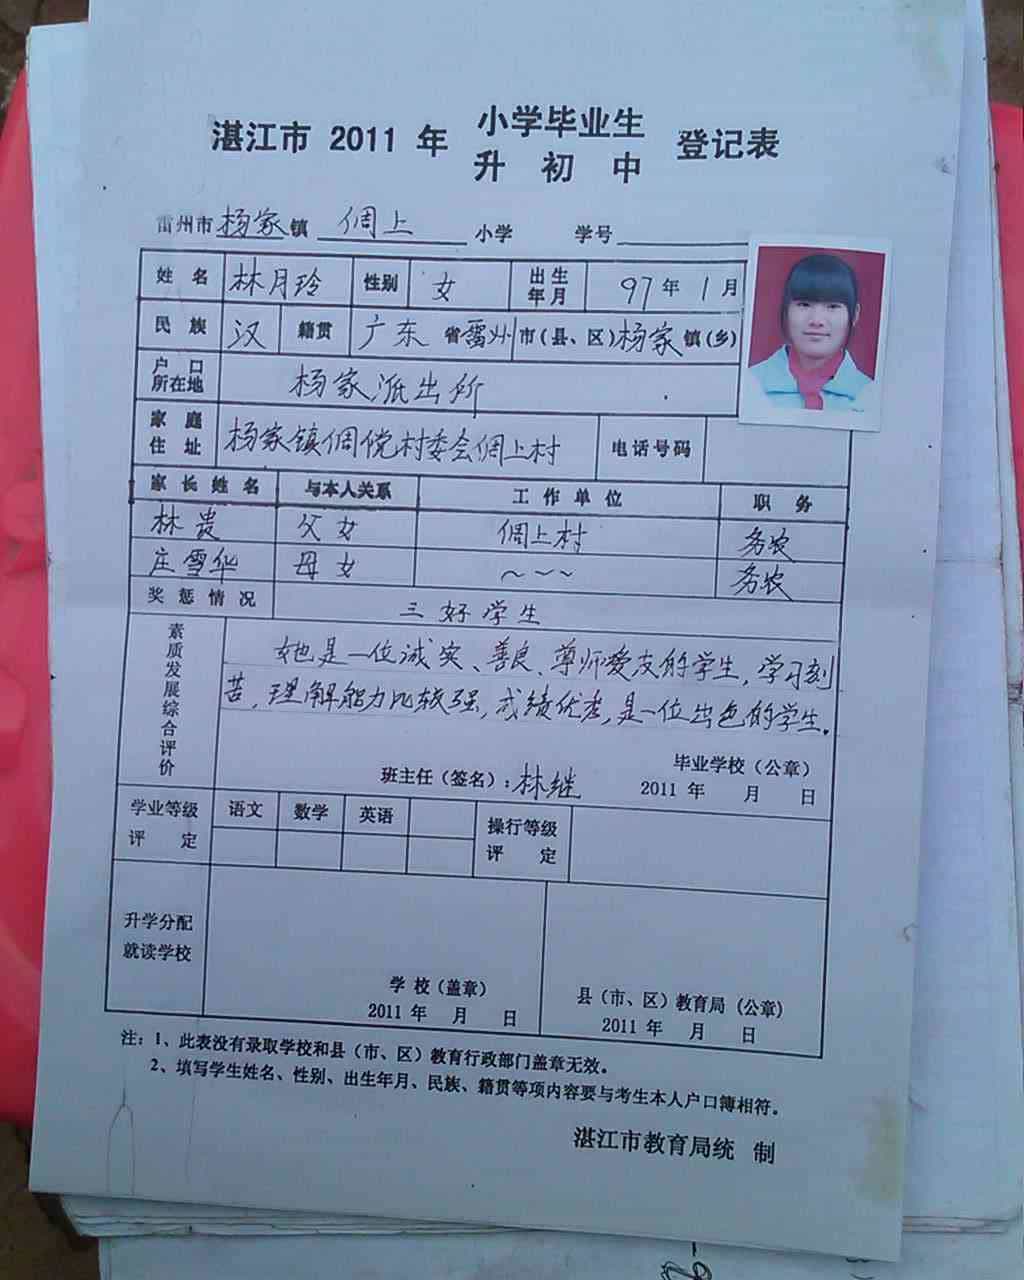 湛江市 2011 年 小学毕业生 登记表
升 初 中
雷州市杨家镇 倜上 小学 学号
姓 名 林月玲 性别 女 出生年月 97年 1月
民 族 汉 籍贯 广东 省雷州市(县、区)杨家镇(乡)
户 口所在地 杨家派出所
家 庭住 址 杨家镇倜傥村委会倜上村 电话号码
家 长 姓 名 与本人关系 工 作 单 位 职 务
林贵 父女 倜上村 务农
庄雪华 母女 ~~~ 务农
奖 惩 情 况 三好学生
素质发展综合评价
她是一位诚实、善良、尊师爱友的学生,学习刻
苦,理解能力比较强,成绩优秀,是一位出色的学生。
毕业学校(公章)
班主任(签名):林继 2011 年 月 日
学业等级评 定 语文 数学 英语 操行等级评 定
升学分配
就读学校
学 校(盖章) 县(市、区)教育局(公章)
2011 年 月 日 2011 年 月 日
注:1、此表没有录取学校和县(市、区)教育行政部门盖章无效。
2、填写学生姓名、性别、出生年月、民族、籍贯等项内容要与考生本人户口簿相符。
湛江市教育局统 制